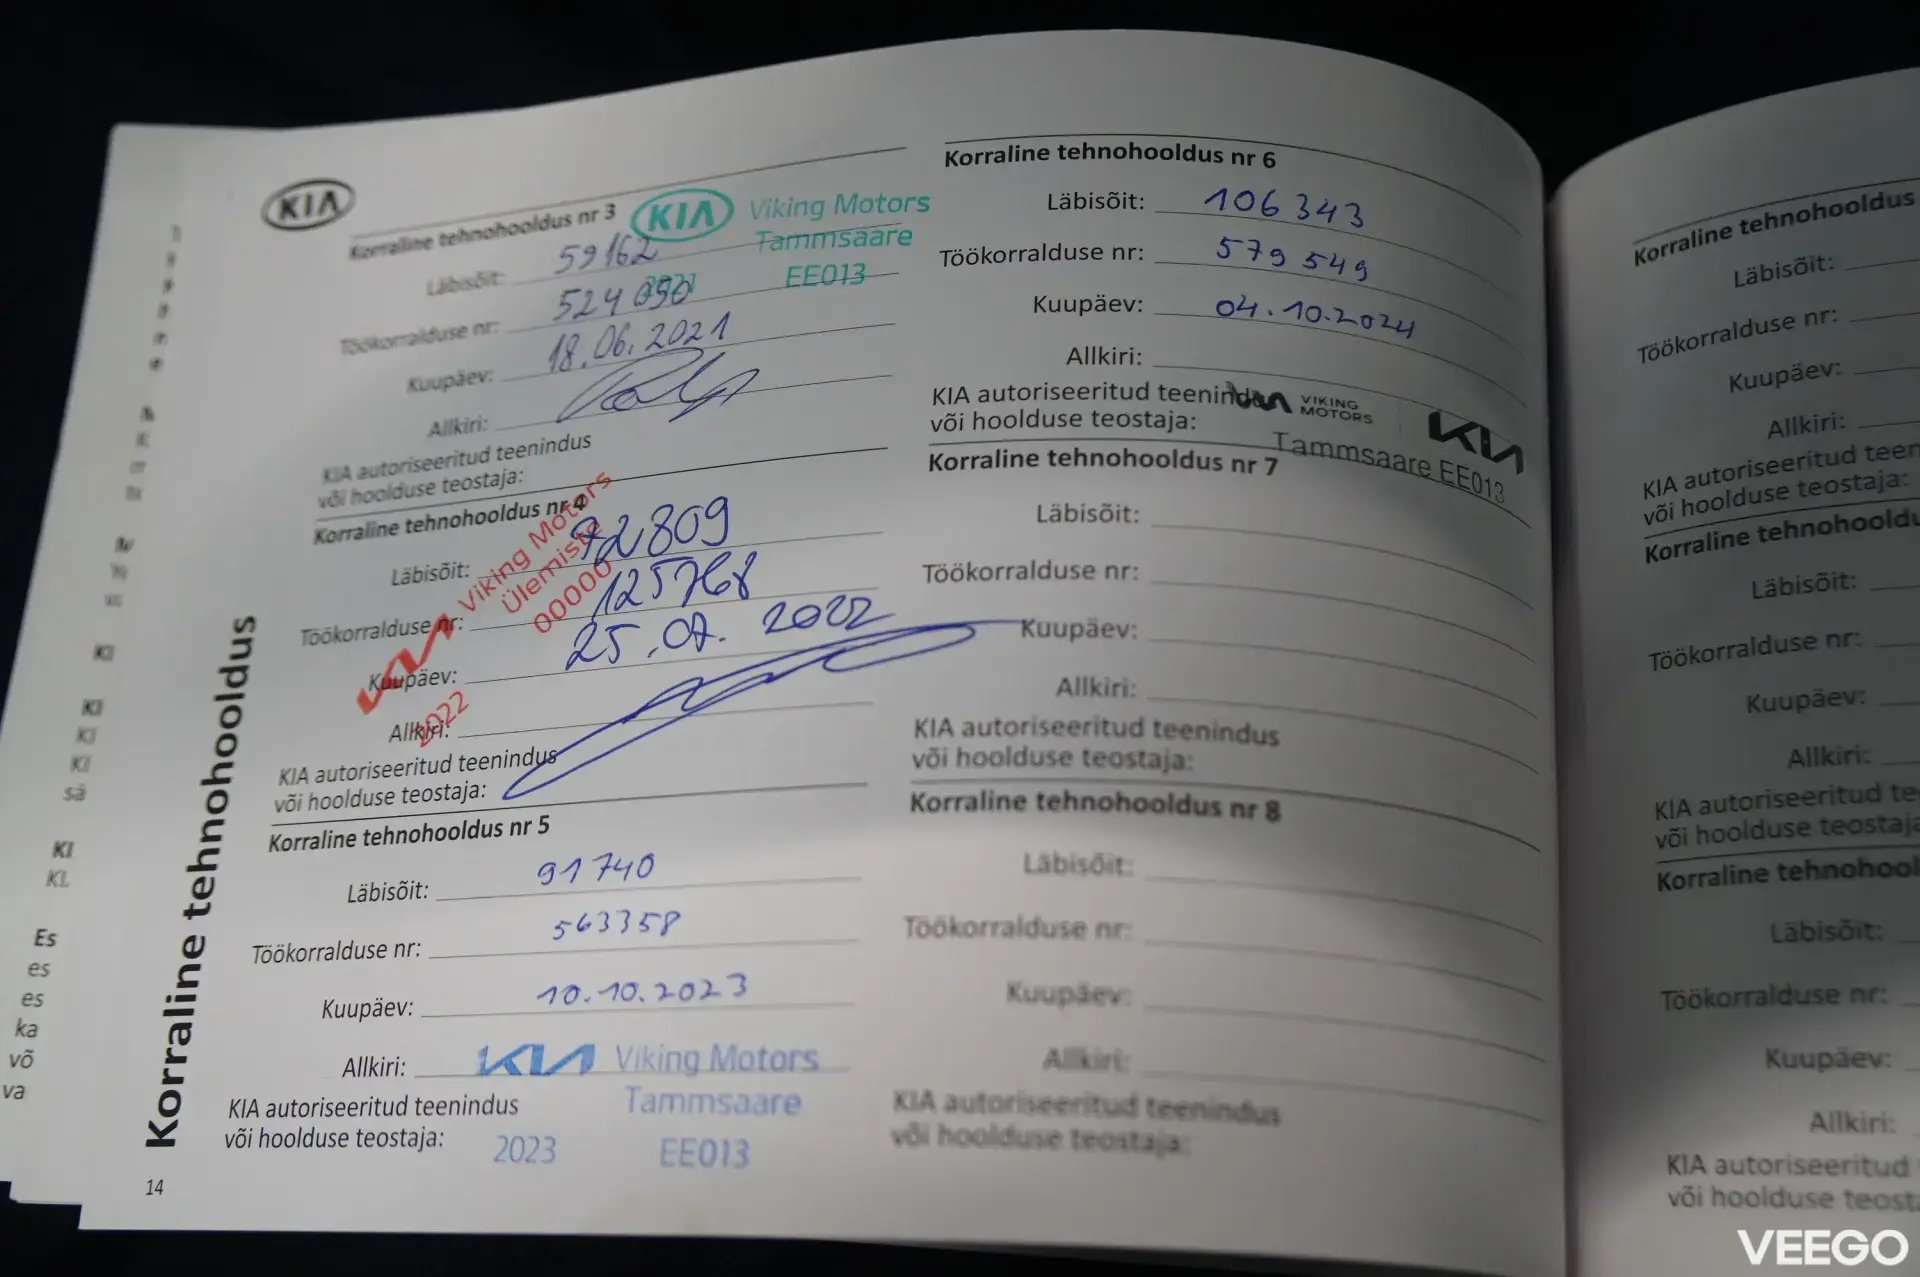 KIA
Korraline tehnohooldus
Korraline tehnohooldus nr 3
KIA Viking Motors
Tammsaare
EE013
2021
Läbisõit: 59162
Töökorralduse nr: 524090
Kuupäev: 18.06.2021
Allkiri:
KIA autoriseeritud teenindus
või hoolduse teostaja:
Korraline tehnohooldus nr 4
KIA Viking Motors
Ülemiste
00000
2022
Läbisõit: 72809
Töökorralduse nr: 125768
Kuupäev: 25.07.2022
Allkiri:
KIA autoriseeritud teenindus
või hoolduse teostaja:
Korraline tehnohooldus nr 5
Läbisõit: 91740
Töökorralduse nr: 563358
Kuupäev: 10.10.2023
Allkiri:
KIA Viking Motors
Tammsaare
KIA autoriseeritud teenindus
või hoolduse teostaja:
2023 EE013
14
Korraline tehnohooldus nr 6
Läbisõit: 106 343
Töökorralduse nr: 579 549
Kuupäev: 04.10.2024
Allkiri:
KIA autoriseeritud teenindus
või hoolduse teostaja:
VIKING
MOTORS
KIA
Tammsaare EE013
Korraline tehnohooldus nr 7
Läbisõit:
Töökorralduse nr:
Kuupäev:
Allkiri:
KIA autoriseeritud teenindus
või hoolduse teostaja:
Korraline tehnohooldus nr 8
Läbisõit:
Töökorralduse nr:
Kuupäev:
Allkiri:
KIA autoriseeritud teenindus
või hoolduse teostaja:
Korraline tehnohooldus
Läbisõit:
Töökorralduse nr:
Kuupäev:
Allkiri:
KIA autoriseeritud teen
või hoolduse teostaja:
Korraline tehnohooldu
Läbisõit:
Töökorralduse nr:
Kuupäev:
Allkiri:
KIA autoriseeritud te
või hoolduse teostaja
Korraline tehnohool
Läbisõit:
Töökorralduse nr:
Kuupäev:
Allkiri:
KIA autoriseeritud
või hoolduse teosta
KI
KI
KI
KI
sä
KI
KL
Es
es
es
ka
võ
va
VEEGO